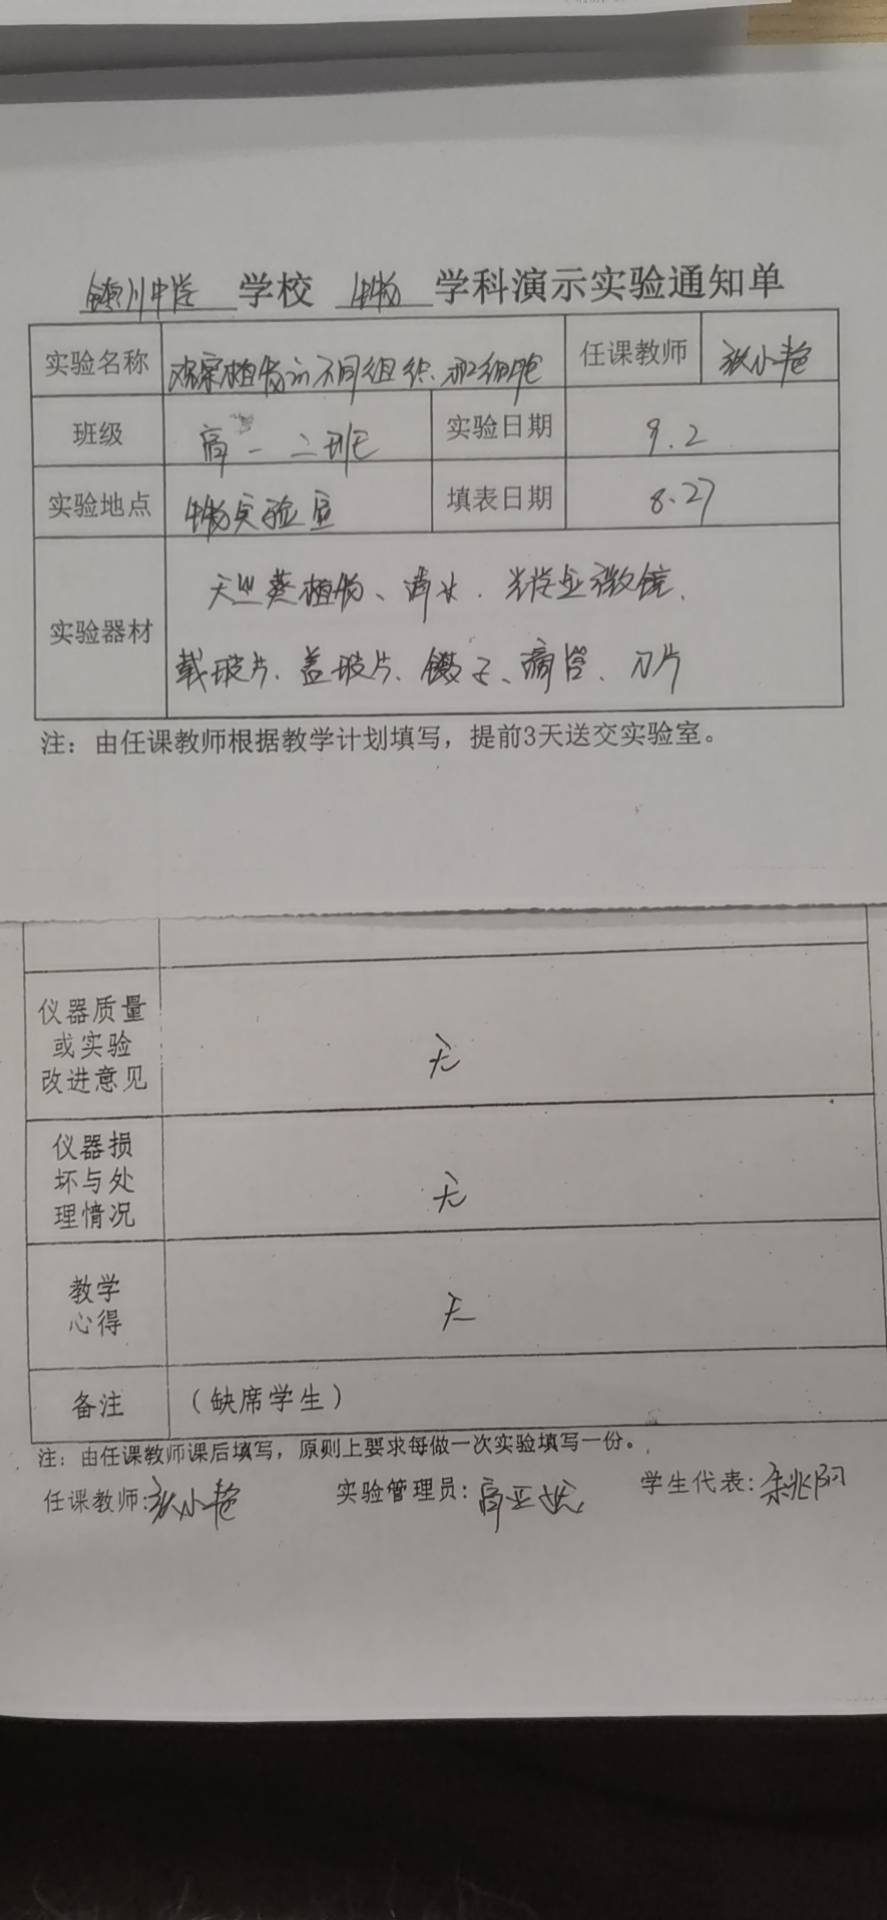 镇川中学 学校 生物 学科演示实验通知单
实验名称 观察植物的不同组织和细胞 任课教师 张小艳
班级 高一二班 实验日期 9.2
实验地点 生物实验室 填表日期 8.27
实验器材 天竺葵植物、清水、光学显微镜、
载玻片、盖玻片、镊子、滴管、刀片
注：由任课教师根据教学计划填写，提前3天送交实验室。
仪器质量
或实验
改进意见
无
仪器损
坏与处
理情况
无
教学
心得
无
备注 （缺席学生）
注：由任课教师课后填写，原则上要求每做一次实验填写一份。
任课教师：张小艳 实验管理员：高亚 学生代表：